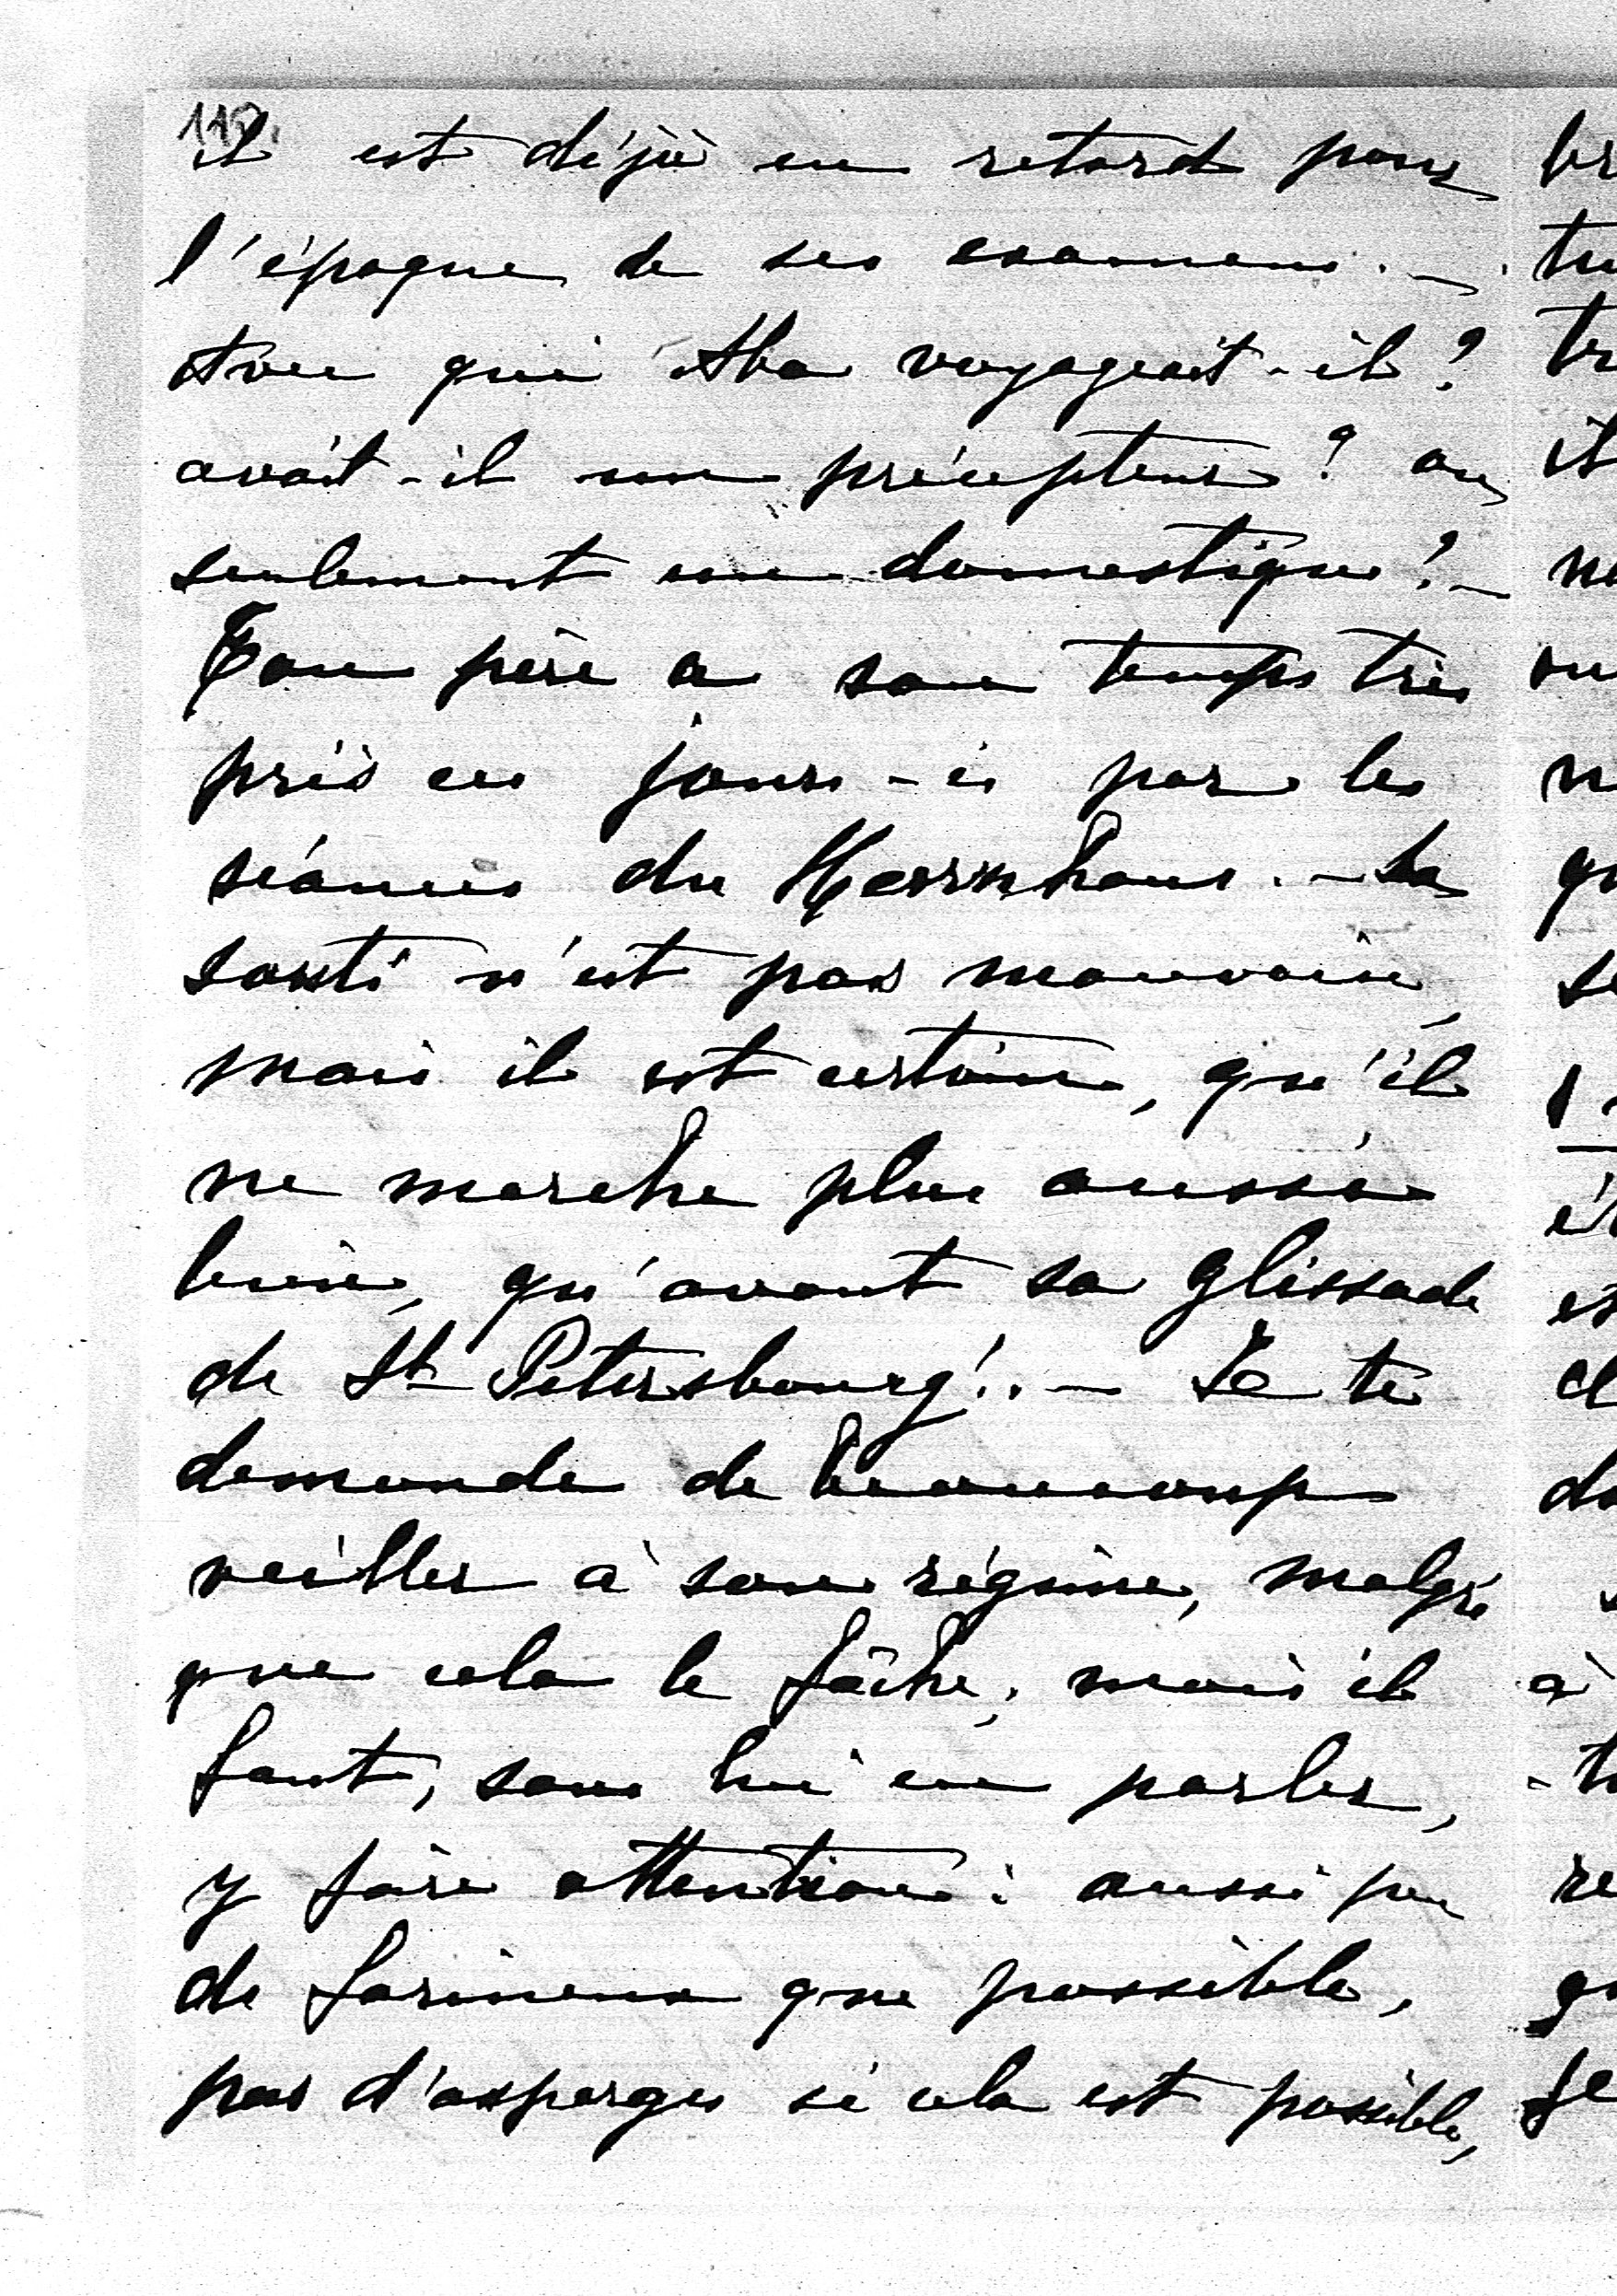 il est déjà en retard pour
l'époque de ses examens. —
Avec qui Aba voyageait-il?
avait-il un précepteur? ou
seulement un domestique? —
Ton père a son temps très
pris ces jours-ci par les
séances du Herrnhaus. — Sa
santé n'est pas mauvaise,
mais il est certain, qu'il
ne marche plus aussi
bien, qu'avant sa glissade
de St Petersbourg!. — Je te
demande de beaucoup
veiller à son régime, malgré
que cela le fâche; mais il
faut, sans lui en parler,
y faire attention: aussi peu
de farineux que possible,
pas d'asperges si cela est possible,